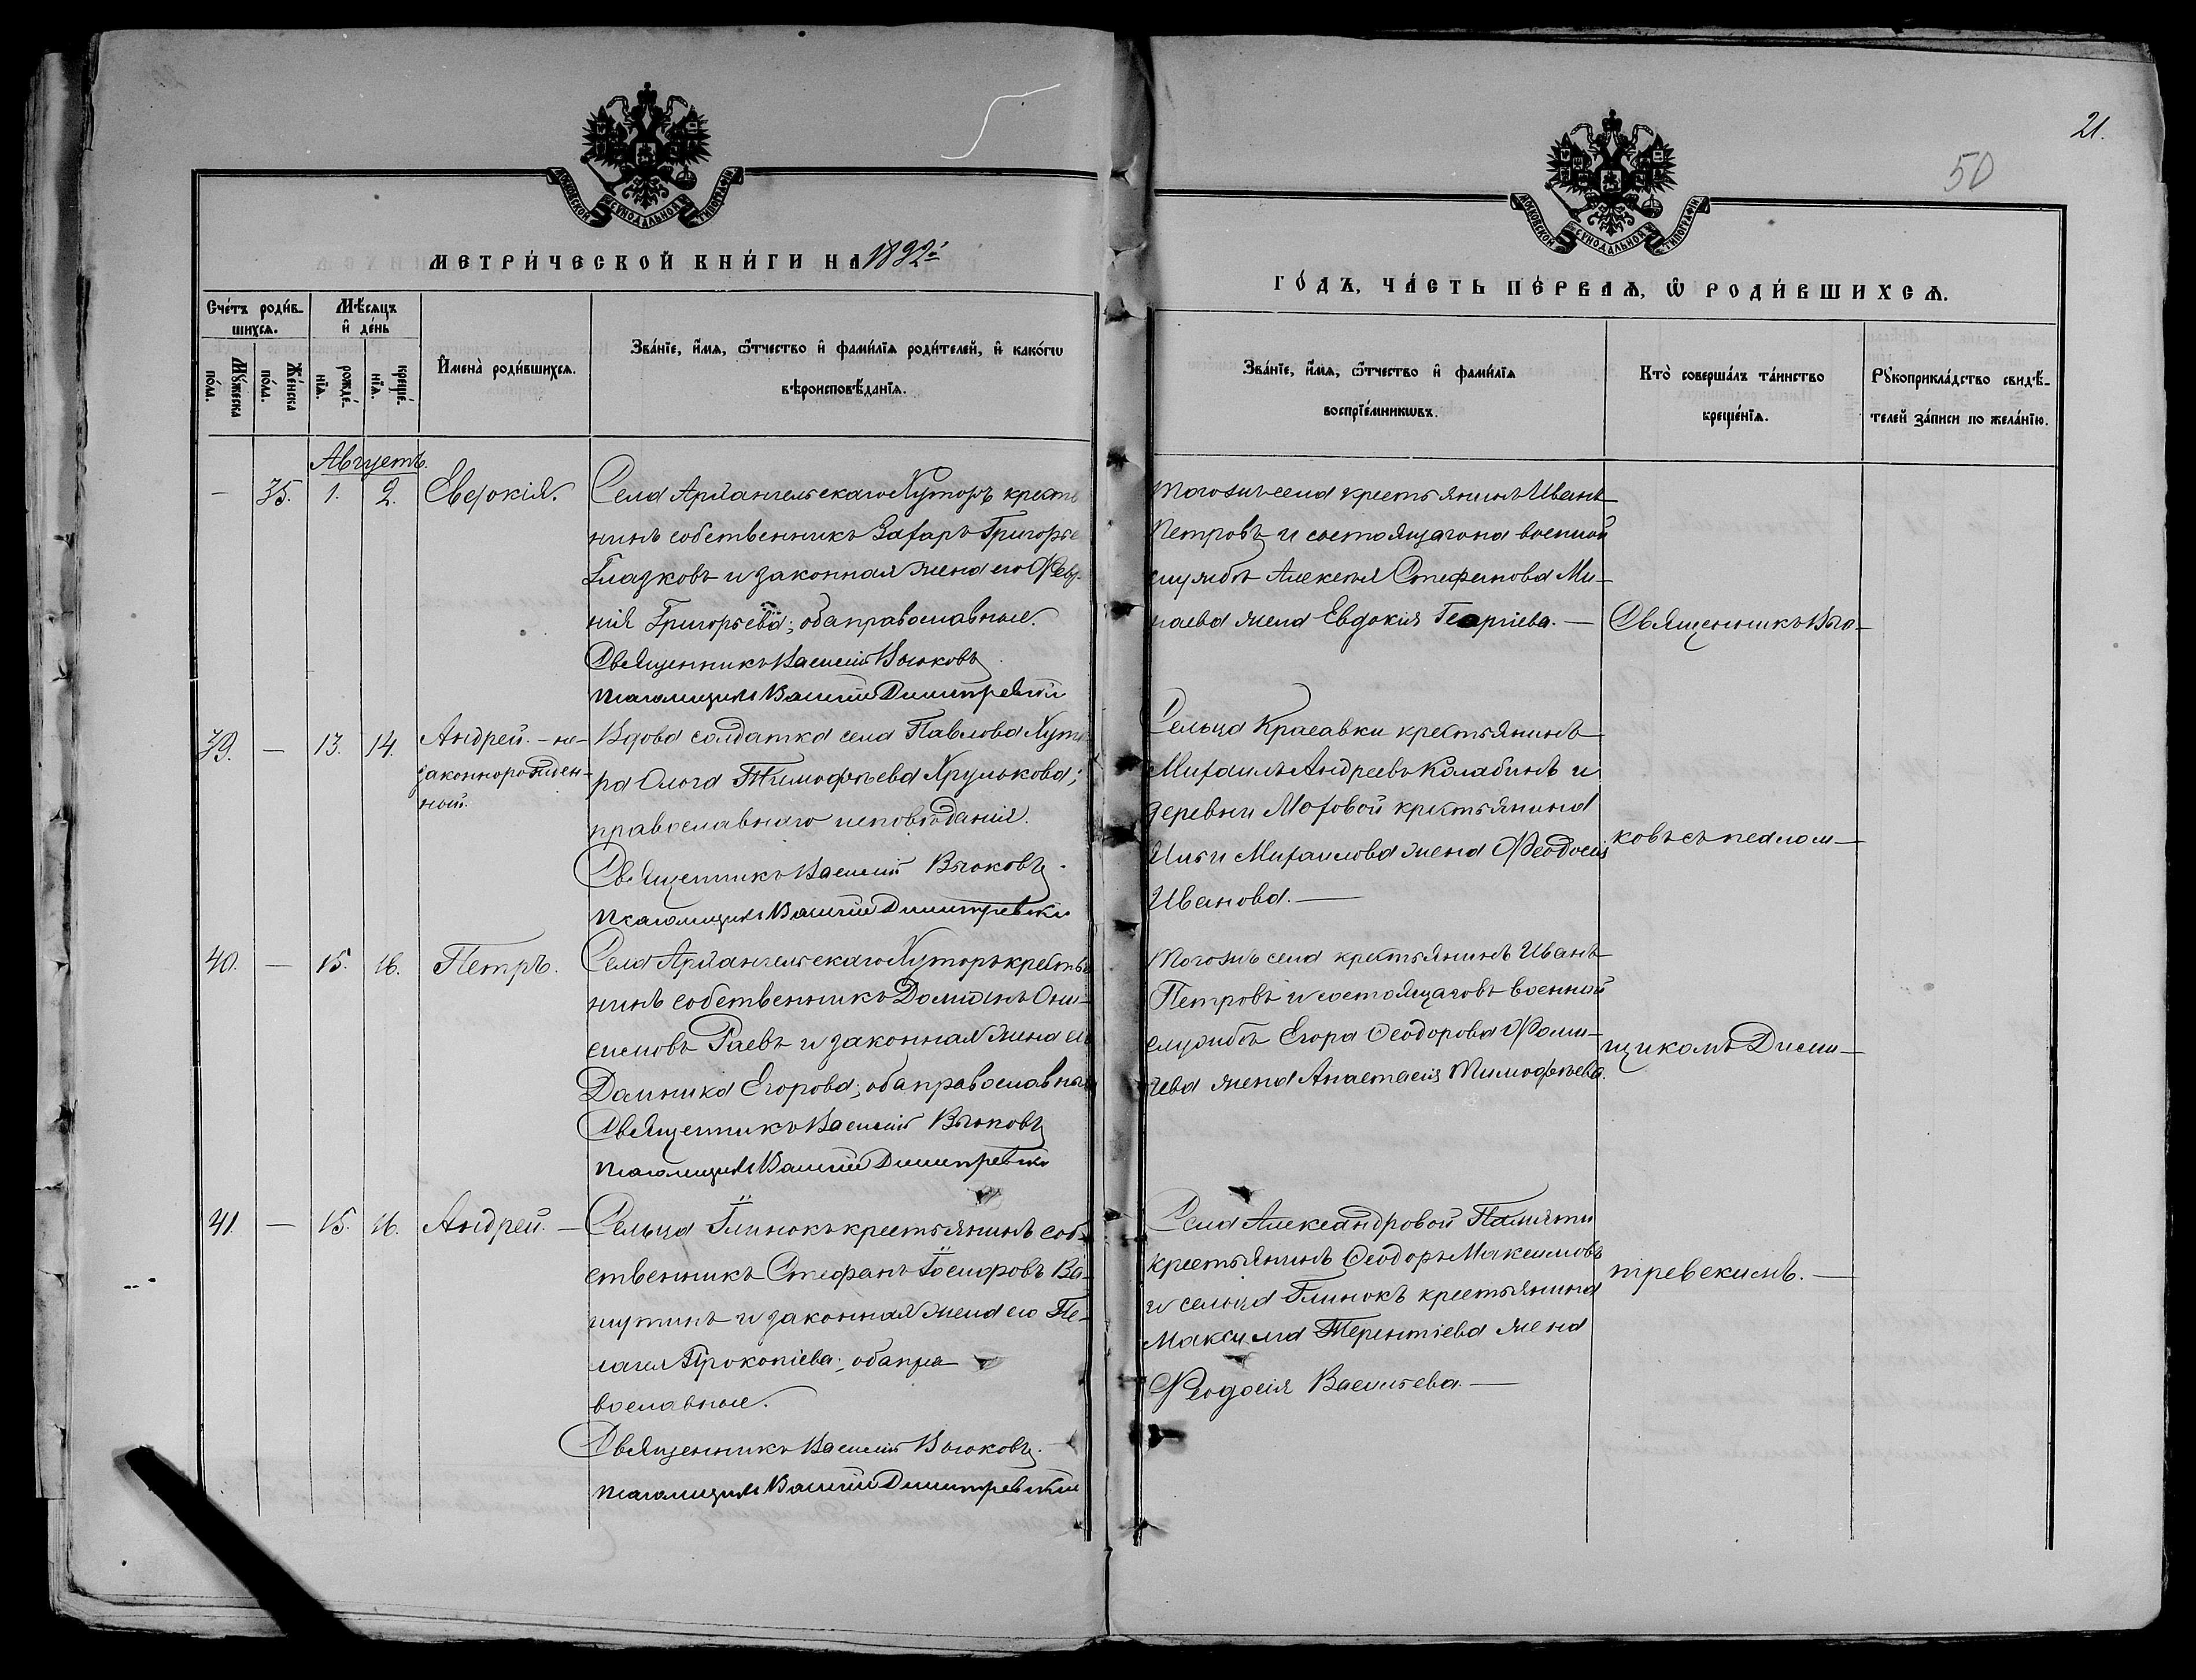 21.
50
МОСКОВСКОЙ СѴНОДАЛЬНОЙ ТИПОГРАФІИ
МОСКОВСКОЙ СѴНОДАЛЬНОЙ ТИПОГРАФІИ
МЕТРИ́ЧЕСКОЙ КНИ́ГИ НА 1892й
ГО́ДЪ, ЧА́СТЬ ПЕ́РВАѦ, Ѿ РОДИ́ВШИХСѦ.
Сче́тъ роди́в-
шихсѧ.
Мѣ́сѧцъ
и҆ де́нь
Мꙋ́жеска по́ла.
Же́нска по́ла.
рожде́-нїѧ.
креще́-нїѧ.
И҆мена̀ роди́вшихсѧ.
Зва́нїе, и҆́мѧ, ѻ҆́тчество и҆ фами́лїѧ роди́телей, и҆ како́гѡ
вѣроисповѣ́данїѧ.
Зва́нїе, и҆́мѧ, ѻ҆́тчество и҆ фами́лїѧ
воспрїе́мникѡвъ.
Кто̀ соверша́лъ та́инство
креще́нїѧ.
Рꙋкоприкла́дство свидѣ́-
телей за́писи по жела́нїю.
Августъ.
— 35. 1. 2. Евдокія.
Села Архангельскаго Хуторъ кресть
нинъ собственникъ Захаръ Григорье
Глазковъ и законная жена его
нія Григорьева; оба православные.
Священникъ Василій Вьюковъ
Псаломщикъ Василій Димитревскій
тогожъ села крестьянинъ Иванъ
Петровъ и состоящаго на военной
службѣ Алексѣя Стефанова Ми-
наева жена Евдокія Георгіева. —
39. — 13. 14. Андрей. — не-
законнорожден-
ный.
Вдова солдатка села Павлова Хуто
ра Ольга Тимофѣева Хрулькова;
православнаго исповѣданія.
Священникъ Василій Вьюковъ
Псаломщикъ Василій Димитревскій
Сельца Красавки крестьянинъ
Михаилъ Андреевъ Калабинъ и
деревни Моховой крестьянина
Ильи Михаилова жена Феодосія
Иванова. —
40. — 15. 16. Петръ.
Села Архангельскаго Хуторъ кресть
нинъ собственникъ Домианъ Они-
симовъ Раевъ и законная жена ег
Домника Егорова; оба православны
Священникъ Василій Вьюковъ
Псаломщикъ Василій Димитревскій
Тогожъ села крестьянинъ Иванъ
Петровъ и состоящаго въ военной
службѣ Егора Ѳеодорова Фоми-
чева жена Анастасія Тимофѣева.
41. — 15. 16. Андрей. —
Сельца Глинокъ крестьянинъ соб-
ственникъ Стефанъ Ва-
шутинъ и законная жена его Пе-
лагея Прокопіева; оба пра
вославные.
Священникъ Василій Вьюковъ.
Псаломщикъ Василій Димитревскій
Села Александровой Памяти
крестьянинъ Ѳеодоръ Максимовъ
и сельца Глинокъ крестьянина
Максима Терентіева жена
Феодосія Васильева. —
Священникъ Вью-
ковъ съ псалом-
щикомъ Дими-
тревскимъ. —